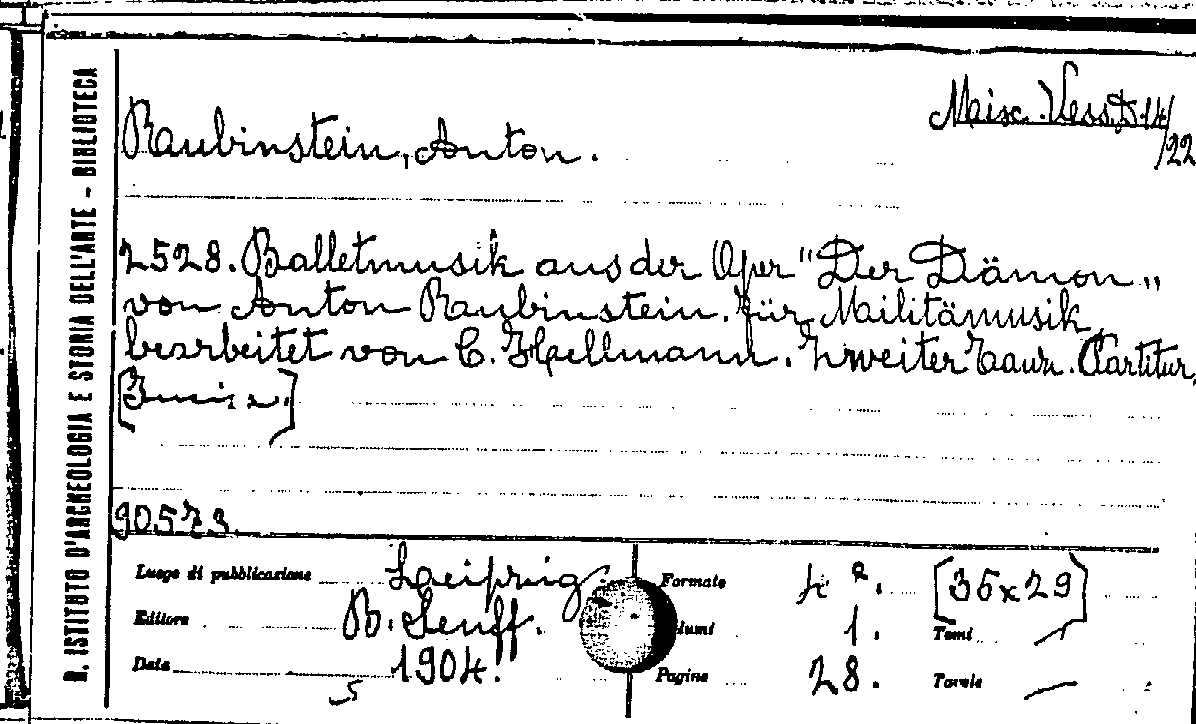 R. ISTITUTO D'ARCHEOLOGIA E STORIA DELL'ARTE - BIBLIOTECA
Misc. Vess. D. 14/22
Rubinstein, Anton.
2528. Balletmusik aus der Oper "Der Dämon"
von Anton Rubinstein. für Militämusik
bearbeitet von C. Hellmann. Zweiter Tanz. Partitur.
90573.
Luogo di pubblicazione Leipzig Formato 4°. [35x29]
Editore B. Senff. Volumi 1. Tomi —
Data 1904. Pagine 28. Tavole —
5